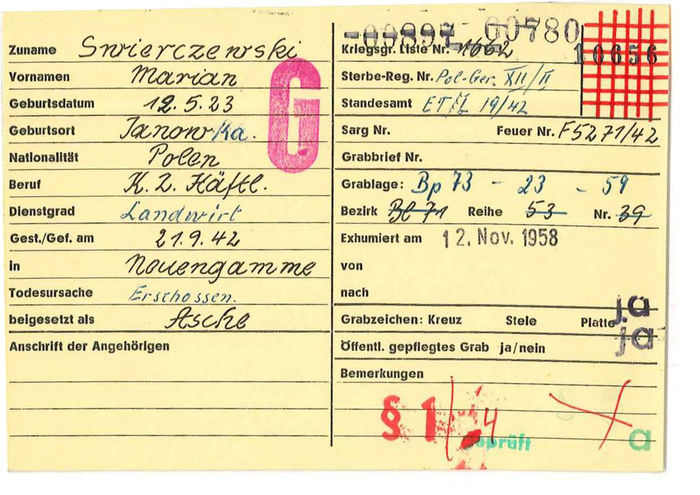 Zuname Swierczewski
Vornamen Marian
Geburtsdatum 12.5.23
Geburtsort Janowka.
Nationalität Polen
Beruf K.Z. Häftl.
Dienstgrad Landwirt
Gest./Gef. am 21.9.42
in Neuengamme
Todesursache Erschossen.
beigesetzt als Asche
Anschrift der Angehörigen
G
00780
Kriegsgr. Liste Nr. 1662
10656
Sterbe-Reg. Nr. Pol-Ger. XII/II
Standesamt 19/42
Sarg Nr. Feuer Nr. F5271/42
Grabbrief Nr.
Grablage: Bp 73 - 23 - 59
Bezirk Bl 71 Reihe 53 Nr. 39
Exhumiert am 12. Nov. 1958
von
nach
ja
Grabzeichen: Kreuz Stele Platte
ja
Öffentl. gepflegtes Grab ja/nein
Bemerkungen
§ 1/4
geprüft
a